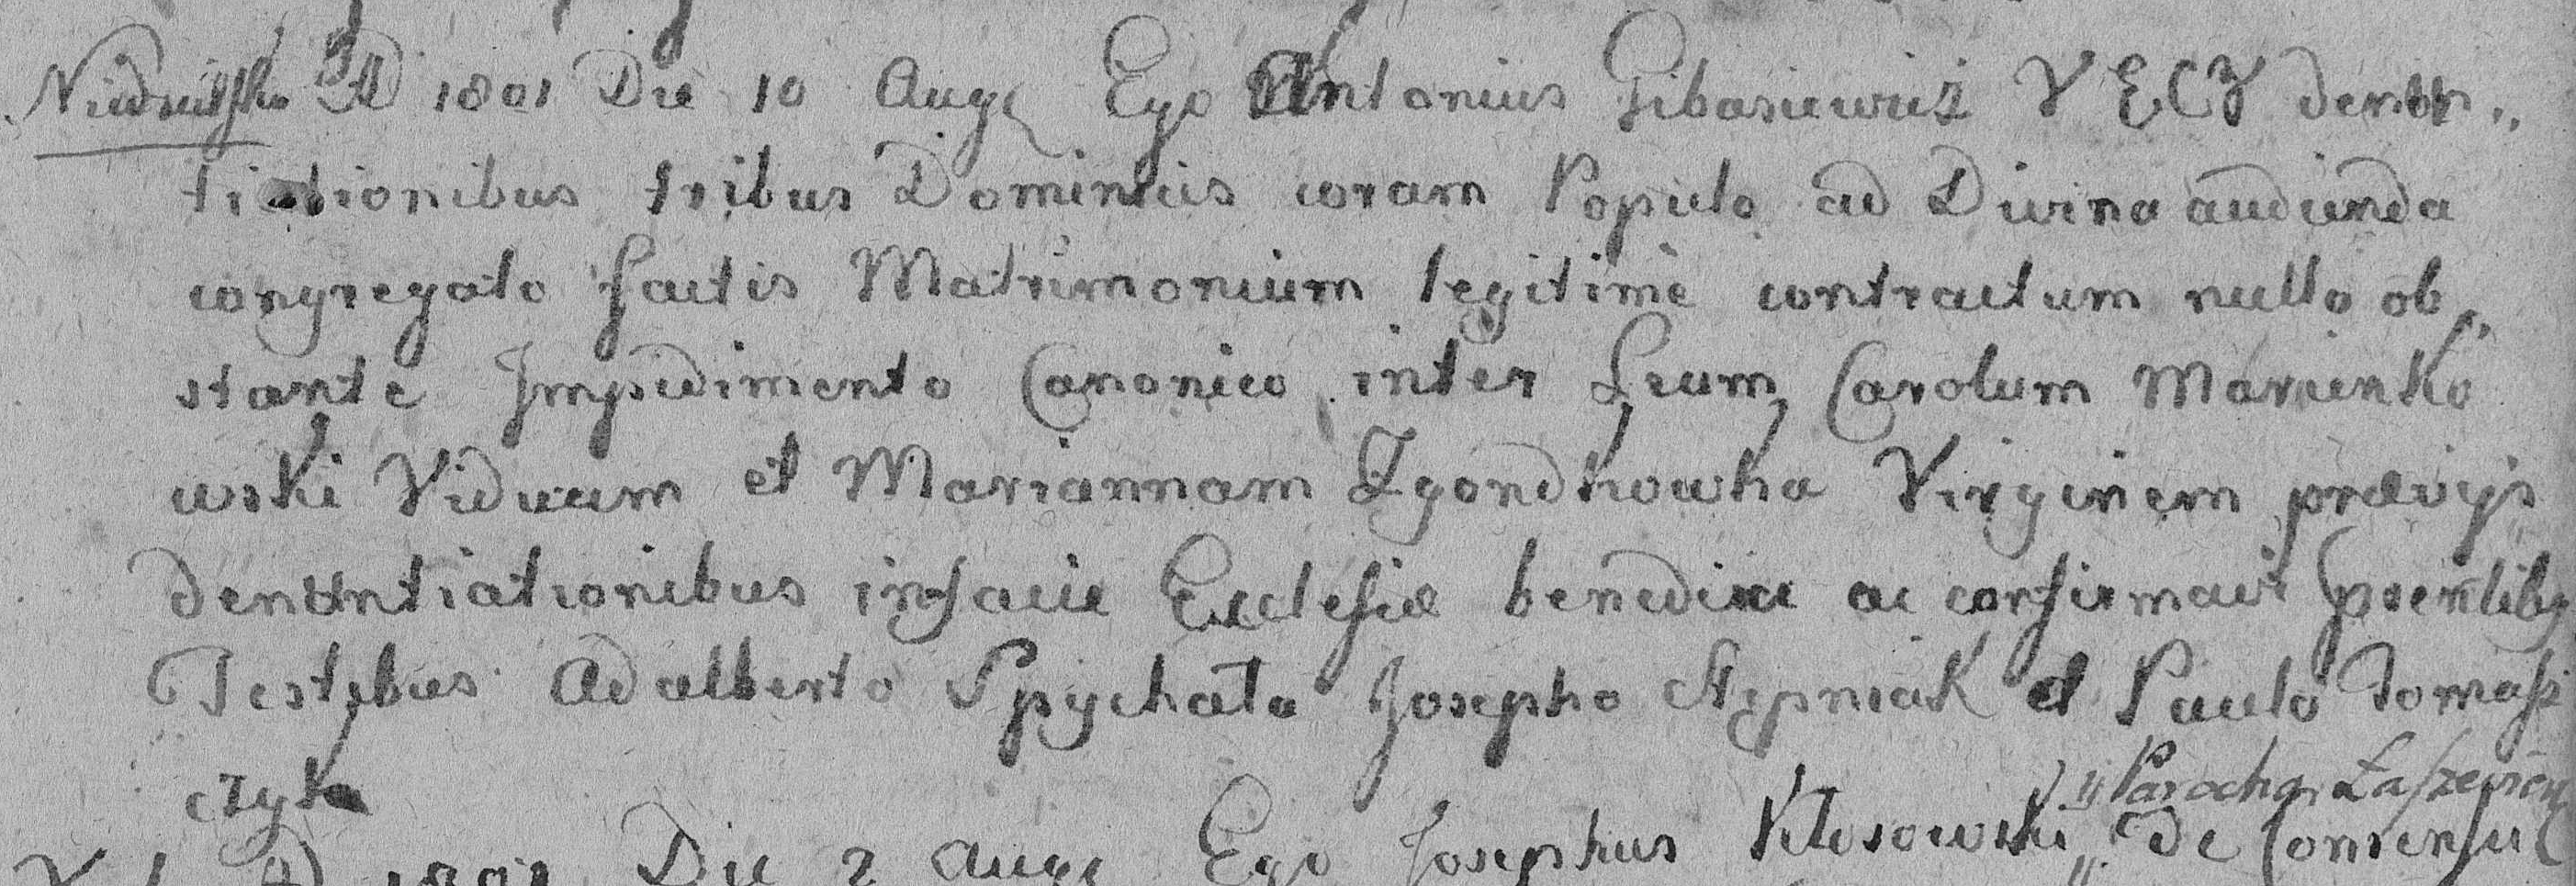 AD 1801 Die 10 Aug Ego Antonius Gibasiewicz V E C Z denun„
tiationibus tribus Dominicis coram Populo ad Divina audienda
congregato factis Matrimonium legitimè contractum nullo ob„
stante Impedimento Canonico inter Carolum Marienko
wski Viduum et Mariannam Zgondkowka Virginem prævijs
denuntiationibus in facie Ecclesiæ benedixi ac confirmavi
Testibus Adalberto Spychała Josepho Stypniak et Paulo Tomaſz
czyka
„ Parocho
1801 Die 2 Aug Ego Josephus Kłosowski „ de Consensu